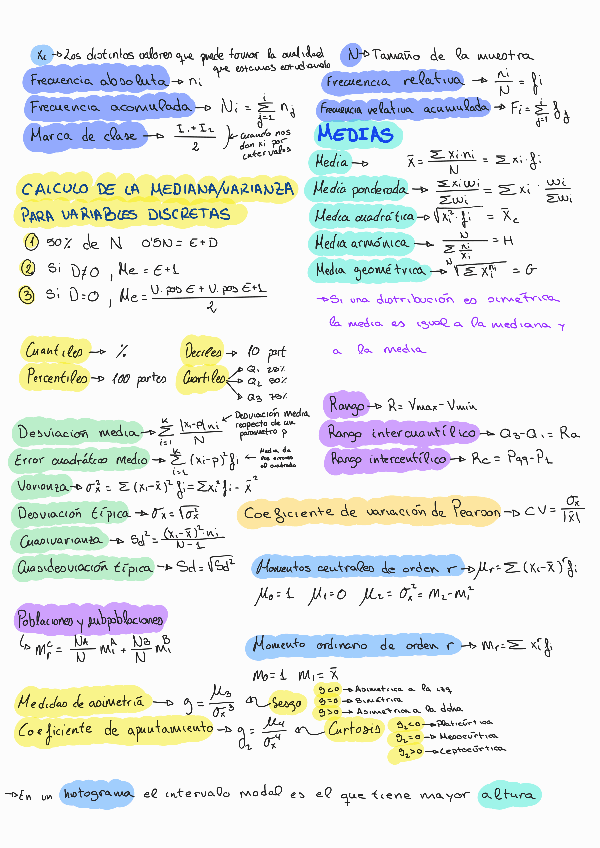 xi → Los distintos valores que puede tomar la cualidad que estamos estudiando
N → Tamaño de la muestra
Frecuencia absoluta → ni
Frecuencia relativa → ni/N = fi
Frecuencia acomulada → Ni = Σ_{j=1}^{i} nj
Frecuencia relativa acumulada → Fi = Σ_{j=1}^{i} fj
Marca de clase → (I1 + I2)/2 } → cuando nos dan xi por intervalos
MEDIAS
Media → x̄ = Σ xi·ni / N = Σ xi · fi
Media ponderada → Σ xi wi / Σ wi = Σ xi · wi / Σ wi
Media cuadrática → √xi² · fi = x̄c
Media armónica → N / Σ ni/xi = H
Media geométrica → ᴺ√Σ xi^ni = G
→ Si una distribución es simétrica
la media es igual a la mediana y
a la media
CALCULO DE LA MEDIANA/VARIANZA
PARA VARIABLES DISCRETAS
1 50% de N 0'5N = E+D
2 Si D≠0, Me = E+1
3 Si D=0, Me = (V. pos E + V. pos E+1)/2
Cuantiles → %
Deciles → 10 part
Percentiles → 100 partes
Cuartiles → Q1 25%
→ Q2 50%
→ Q3 75%
Rango → R = Vmax - Vmin
Rango intercuantílico → Q3 - Q1 = Ra
Rango intercentílico → Rc = P99 - P1
Desviación media → Σ_{i=1}^{k} |xi-p| ni / N ← Desviación media respecto de un parámetro p
Error cuadrático medio → Σ_{i=1}^{k} (xi-p)² fi ← Media de los errores al cuadrado
Varianza → σx² = Σ (xi-x̄)² fi = Σ xi² fi - x̄²
Desviación típica → σx = √σx²
Cuasivarianza → Sd² = (xi-x̄)² · ni / N-1
Cuasidesviación típica → Sd = √Sd²
Coeficiente de variación de Pearson → CV = σx / |x̄|
Momentos centrales de orden r → μr = Σ (xi-x̄)^r fi
μ0 = 1 μ1 = 0 μ2 = σx² = m2 - m1²
Poblaciones y subpoblaciones
↳ mr^C = NA/N m1^A + NB/N m1^B
Momento ordinario de orden r → mr = Σ xi^r fi
m0 = 1 m1 = x̄
Medidas de asimetría → g = μ3 / σx³ Sesgo
g<0 → Asimetrica a la izq
g=0 → Simétrica
g>0 → Asimetrica a la dcha
Coeficiente de apuntamiento → g2 = μ4 / σx⁴ Curtosis
g2<0 → Platicúrtica
g2=0 → Mesocúrtica
g2>0 → Leptocúrtica
→ En un histograma el intervalo modal es el que tiene mayor altura